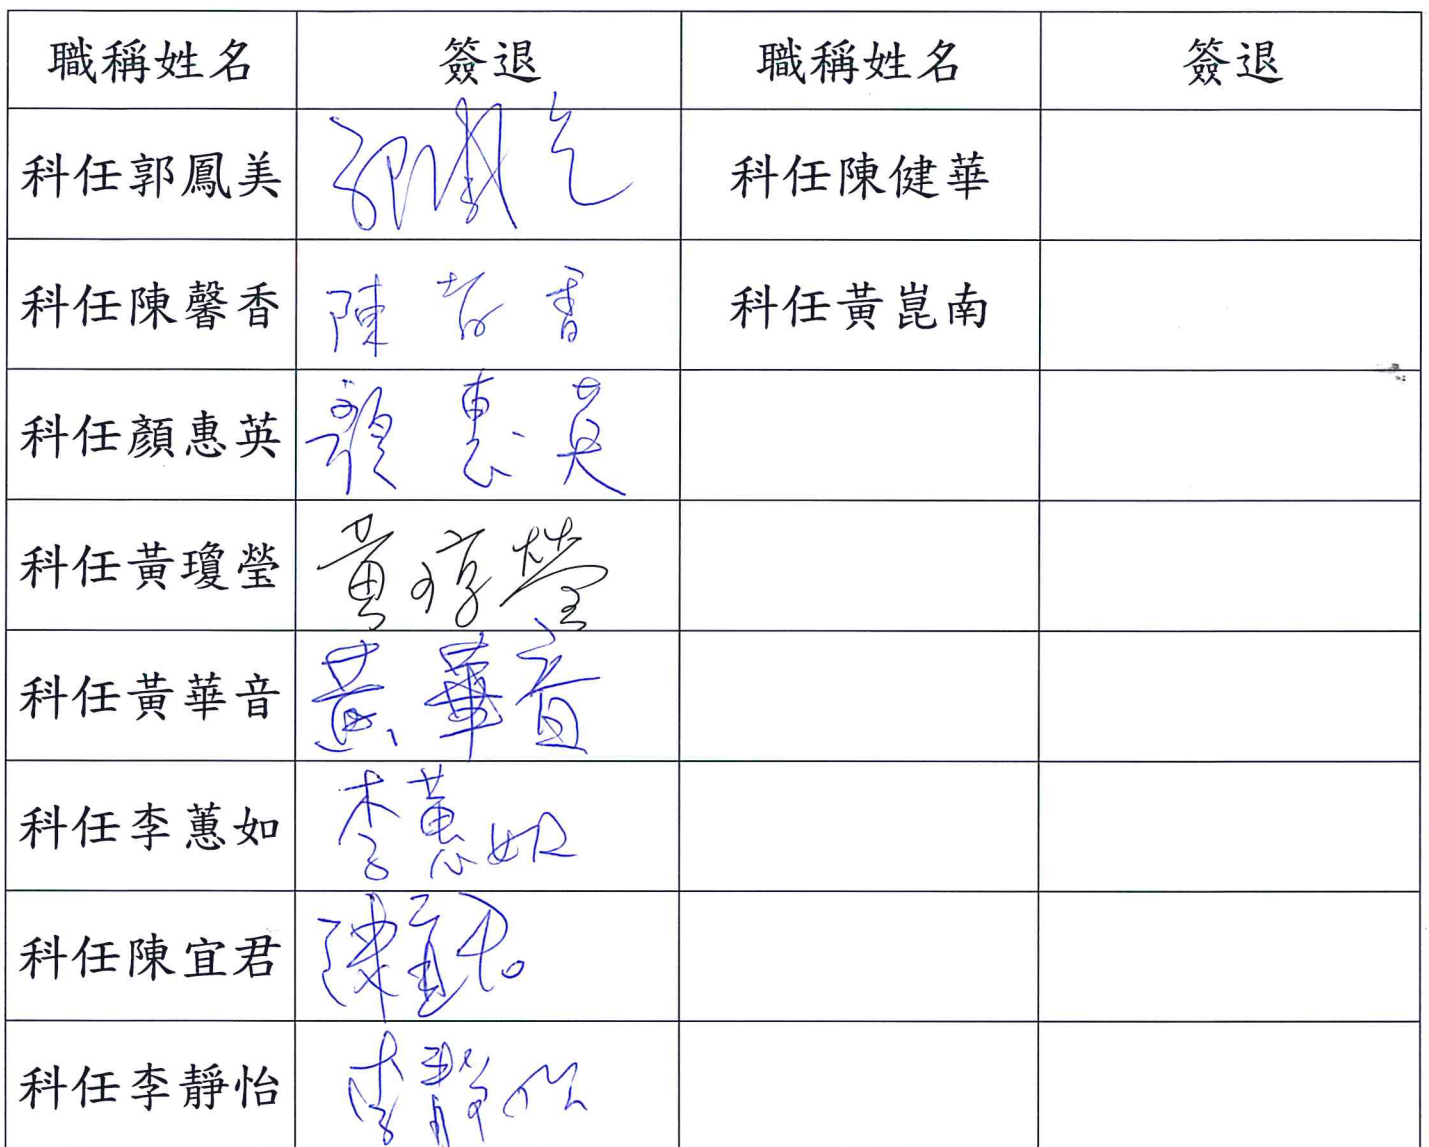 職稱姓名 簽退 職稱姓名 簽退
科任郭鳳美 郭鳳美 科任陳健華
科任陳馨香 陳馨香 科任黃崑南
科任顏惠英 顏惠英
科任黃瓊瑩 黃瓊瑩
科任黃華音 黃華音
科任李蕙如 李蕙如
科任陳宜君 陳宜君
科任李靜怡 李靜怡